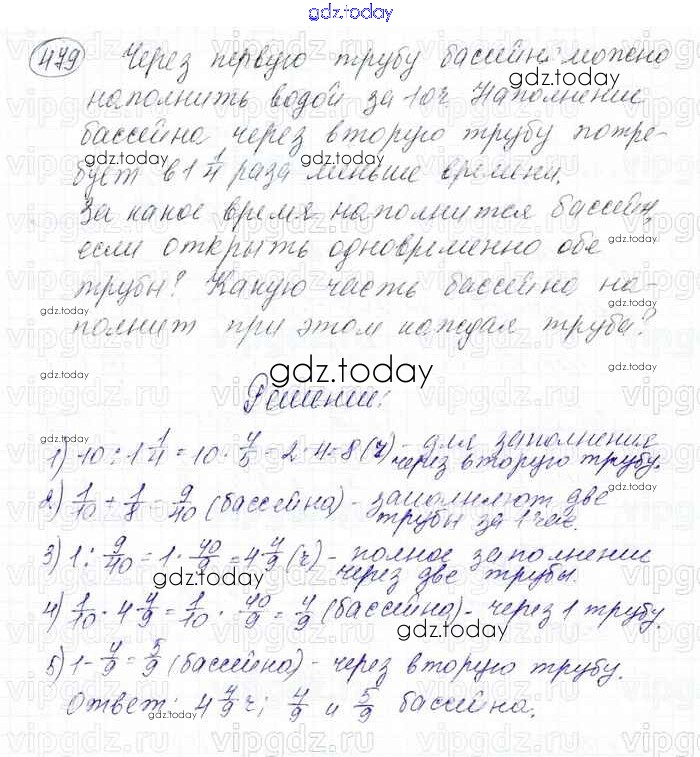 gdz.today
479 Через первую трубу бассейн можно
gdz.today
наполнить водой за 10ч. Наполнение
бассейна через вторую трубу потре-
gdz.today gdz.today
бует в 1 1/4 раза меньше времени.
За какое время наполнится бассейн,
если открыть одновременно обе
gdz.today
трубы? Какую часть бассейна на-
полнит при этом каждая труба?
gdz.today
gdz.today
Решение:
1) 10 : 1 1/4 = 10 · 4/5 = 2 · 4 = 8 (ч) - для заполнения
через вторую трубу.
gdz.today gdz.today
2) 1/10 + 1/8 = 9/40 (бассейна) - заполняют две
трубы за 1 час.
gdz.today
3) 1 : 9/40 = 1 · 40/9 = 4 4/9 (ч) - полное заполнение
через две трубы.
gdz.today
4) 1/10 · 4 4/9 = 1/10 · 40/9 = 4/9 (бассейна) - через 1 трубу.
gdz.today
5) 1 - 4/9 = 5/9 (бассейна) - через вторую трубу.
Ответ: 4 4/9 ч; 4/9 и 5/9 бассейна.
gdz.today
gdz.today